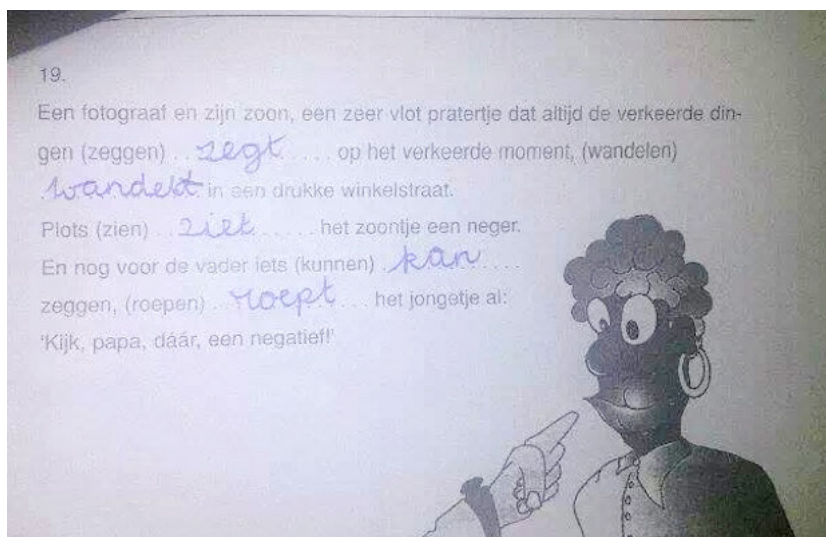 19.
Een fotograaf en zijn zoon, een zeer vlot pratertje dat altijd de verkeerde din-
gen (zeggen) . . zegt . . . . op het verkeerde moment, (wandelen)
. wandelt . in een drukke winkelstraat.
Plots (zien) . . ziet . . . . . het zoontje een neger.
En nog voor de vader iets (kunnen) . kan . . . . .
zeggen, (roepen) . . roept . . . het jongetje al:
'Kijk, papa, dáár, een negatief!'